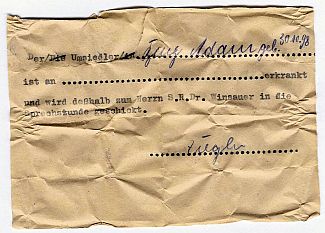 Der/Die Umsiedler/in Jung Adam geb. 30.10.93
ist an ........................................ erkrankt
und wird deßhalb zum Herrn S.R.Dr. Winsauer in die
Sprechstunde geschickt.
Ziegler